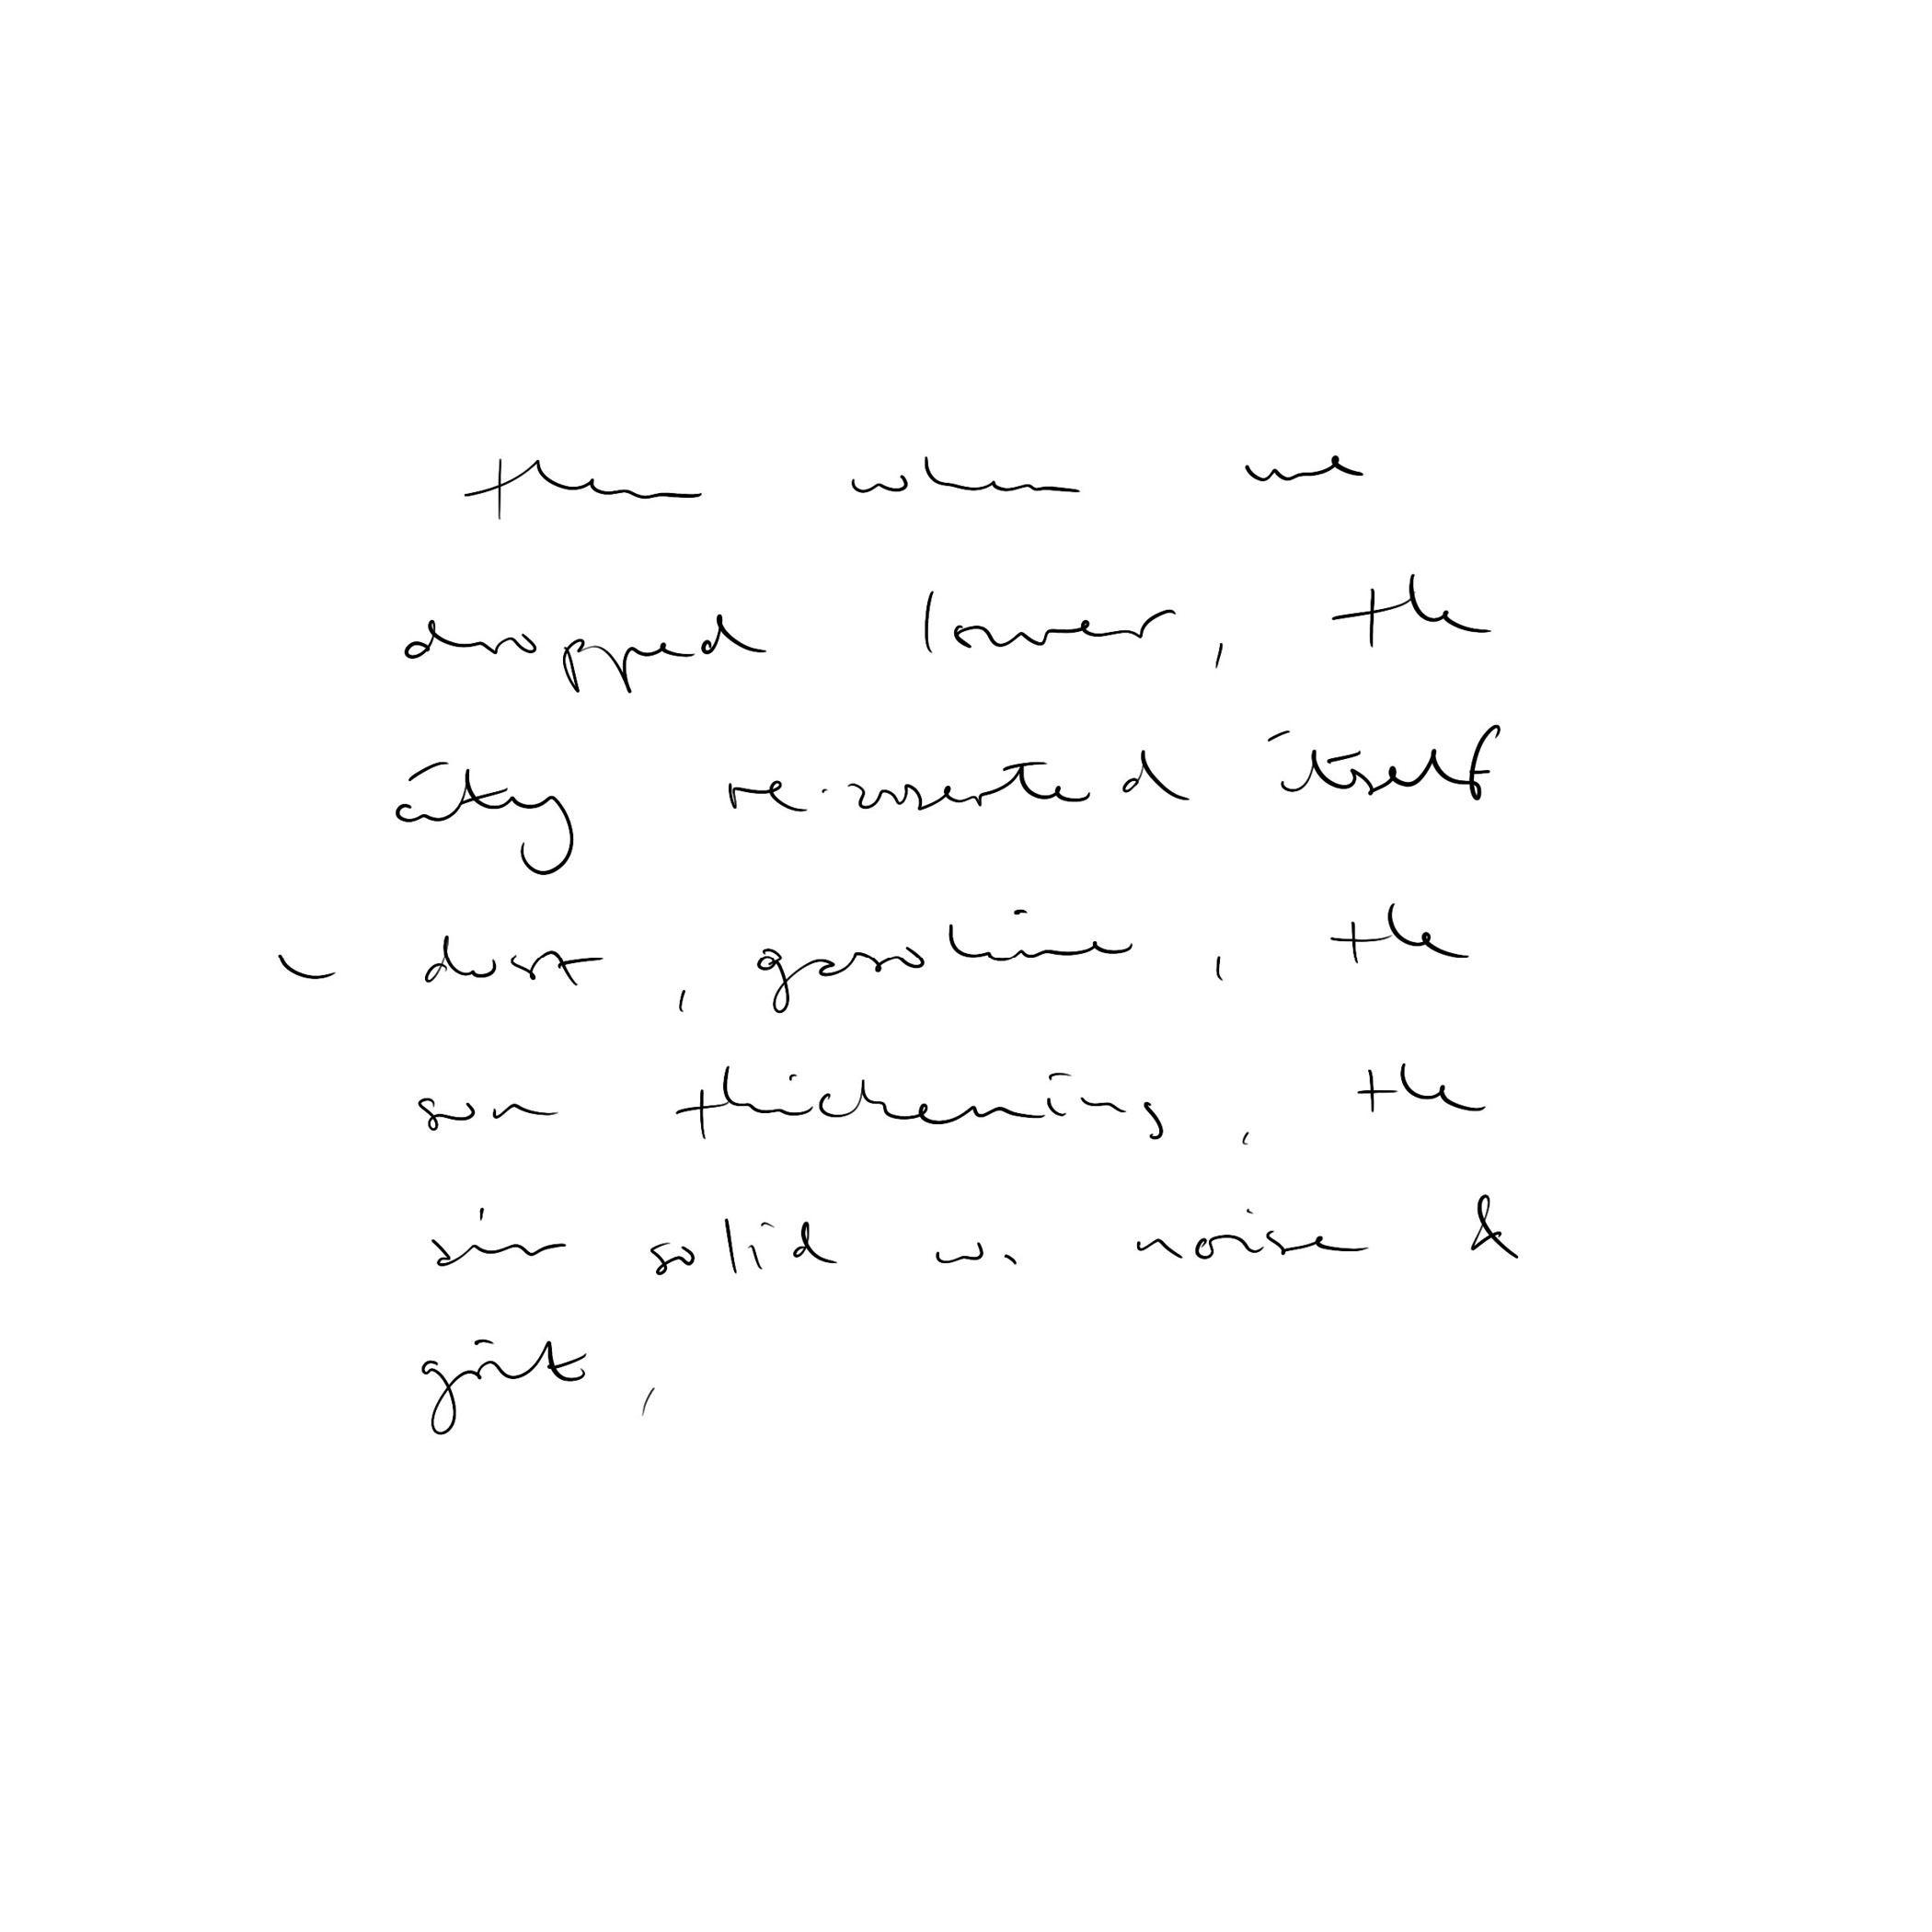 then when we
dropped lower, the
city re-inserted itself
– dust, gasoline, the
sun thickening, the
air solid w. noise &
grit,